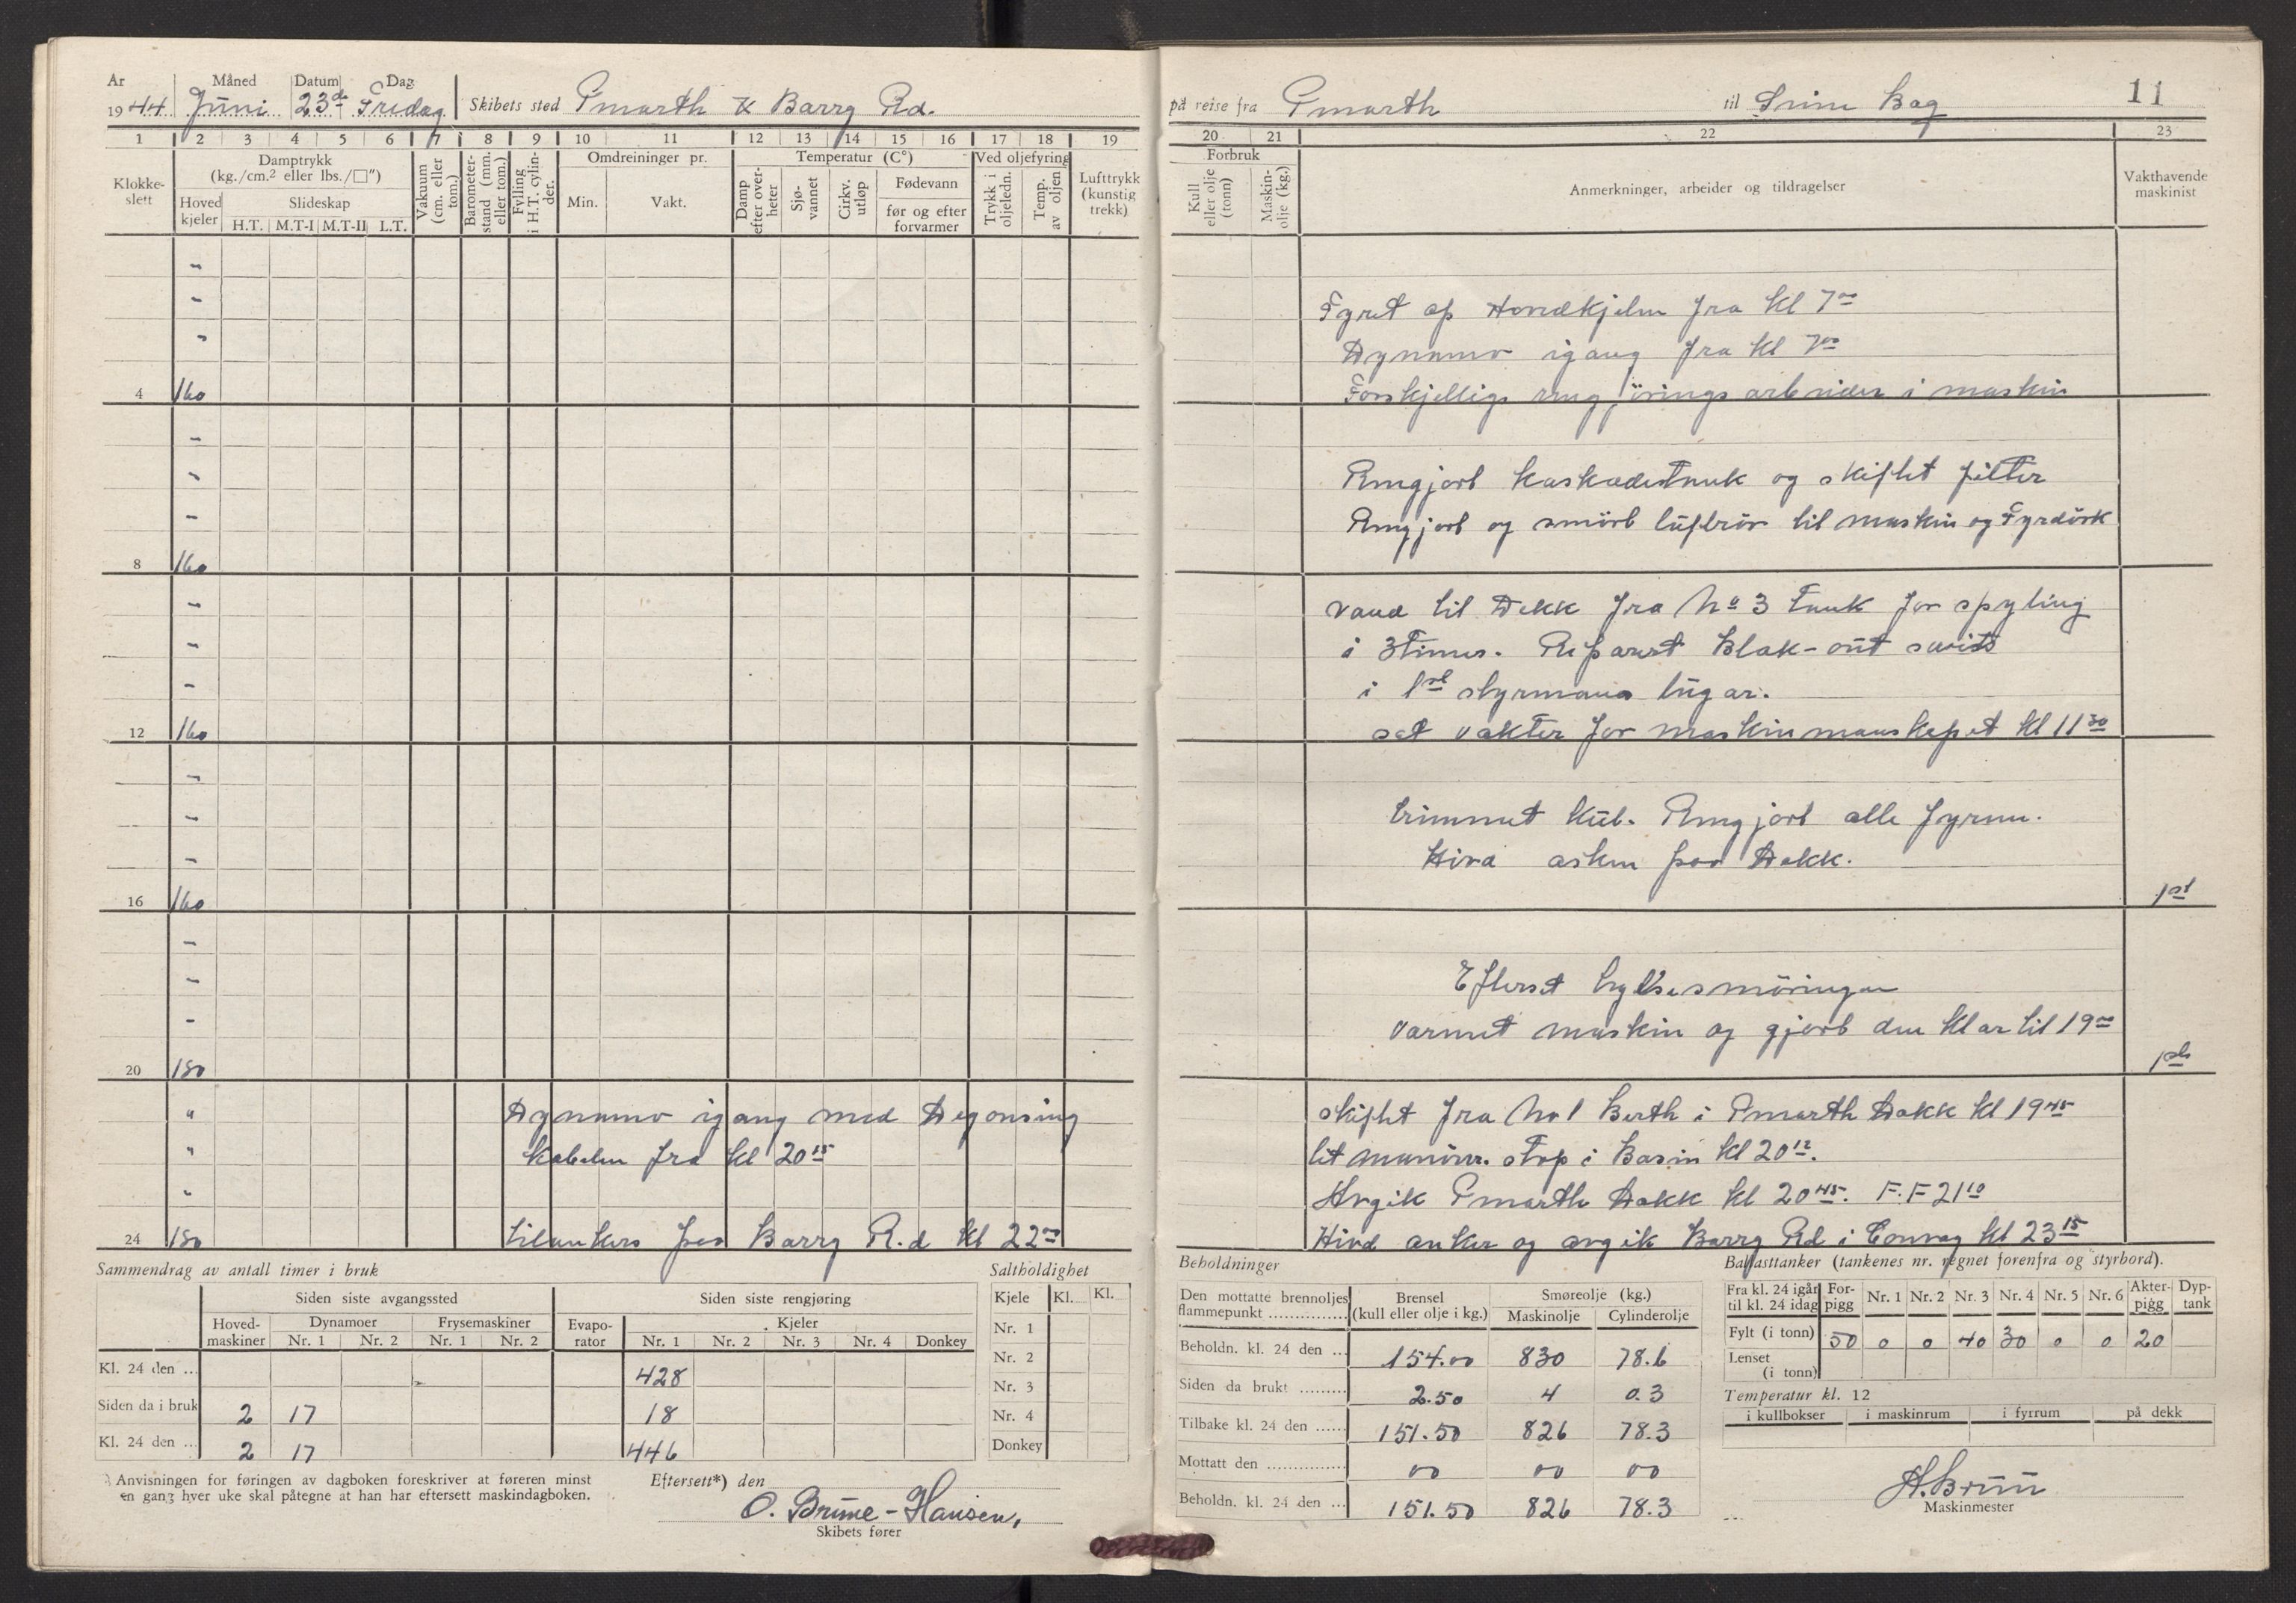 År 1944 Måned Juni Datum 23de Dag Fredag Skibets sted Pnarth & Barry Rd.
på reise fra Pnarth til Seine Bay 11
1 2 3 4 5 6 7 8 9 10 11 12 13 14 15 16 17 18 19
20 21 22 23
Klokkeslett
Damptrykk (kg./cm.² eller lbs./□")
Hoved kjeler
Slideskap
H.T. M.T-I M.T-II L.T.
Vakuum (cm. eller tom.)
Barometerstand (mm. eller tom.)
Fylling i H.T. cylinder.
Omdreininger pr.
Min. Vakt.
Temperatur (C°)
Damp efter overheter
Sjøvannet
Cirkv. utløp
Fødevann
før og efter forvarmer
Ved oljefyring
Trykk i oljeledn.
Temp. av oljen
Lufttrykk (kunstig trekk)
Forbruk
Kull eller olje (tonn)
Maskinolje (kg.)
Anmerkninger, arbeider og tildragelser
Vakthavende maskinist
Fyret op Hovedkjelen fra kl 7ºº
Dynamo igang fra kl 7ºº
4 160 Forskjellige rengjörings arbeider i maskin
Rengjort kaskadetank og skiftet filter
Rengjort og smört luftrör til maskin og Fyrdörk
8 160
vand til Dekk fra No 3 tank for spyling
i 3 Timer. Reparert Blak-out swits
i 1st styrmans lugar.
12 160 sat vakter for maskinmanskapet kl 11³⁰
trimmet kul. Rengjort alle fyrene.
Hivd asken paa Dekk.
16 160 1st
Efterset hylsesmöringen
varmet maskin og gjort den klar til 19ºº
20 180 1st
" Dynamo igang med Degousing
" kabelen fra kl 20¹⁵
"
24 180 til ankers paa Barry R.d kl 22ºº
skiftet fra No 1 Berth i Pnarth Dokk kl 19⁴⁵
lit manövr. stop i Basin kl 20¹².
Avgik Pnarth Dokk kl 20⁴⁵. F.F 21¹⁰
Hivd anker og avgik Barry Rd i Convoy kl 23¹⁵
Sammendrag av antall timer i bruk
Siden siste avgangssted Siden siste rengjøring
Hovedmaskiner Dynamoer Frysemaskiner Evaporator Kjeler
Nr. 1 Nr. 2 Nr. 1 Nr. 2 Nr. 1 Nr. 2 Nr. 3 Nr. 4 Donkey
Kl. 24 den ... 428
Siden da i bruk 2 17 18
Kl. 24 den ... 2 17 446
Saltholdighet
Kjele Kl. Kl.
Nr. 1
Nr. 2
Nr. 3
Nr. 4
Donkey
*) Anvisningen for føringen av dagboken foreskriver at føreren minst
en gang hver uke skal påtegne at han har eftersett maskindagboken.
Eftersett*) den
O. Brüne-Hansen,
Skibets fører
Beholdninger
Den mottatte brennoljes flammepunkt ............... Brensel (kull eller olje i kg.) Smøreolje (kg.) Maskinolje Cylinderolje
Beholdn. kl. 24 den ... 154.00 830 78.6
Siden da brukt ......... 2.50 4 0.3
Tilbake kl. 24 den ...... 151.50 826 78.3
Mottatt den ............... 00 00 00
Beholdn. kl. 24 den ... 151.50 826 78.3
Ballasttanker (tankenes nr. regnet forenfra og styrbord).
Fra kl. 24 igår til kl. 24 idag Forpigg Nr. 1 Nr. 2 Nr. 3 Nr. 4 Nr. 5 Nr. 6 Akterpigg Dyptank
Fylt (i tonn) 50 0 0 40 30 0 0 20
Lenset (i tonn)
Temperatur kl. 12
i kullbokser i maskinrum i fyrrum på dekk
A. Brun
Maskinmester